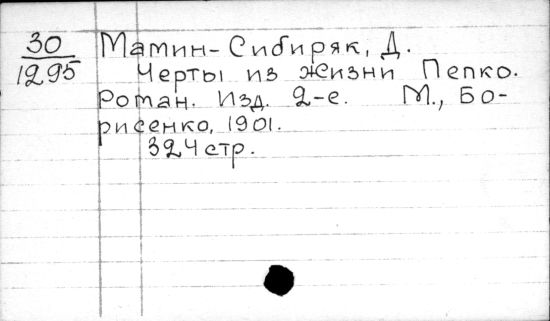 30 Мамин-Сибиряк, Д.
1295 Черты из жизни Пепко.
Роман. Изд. 2-е. М., Бо-
рисенко, 1901.
324 стр.